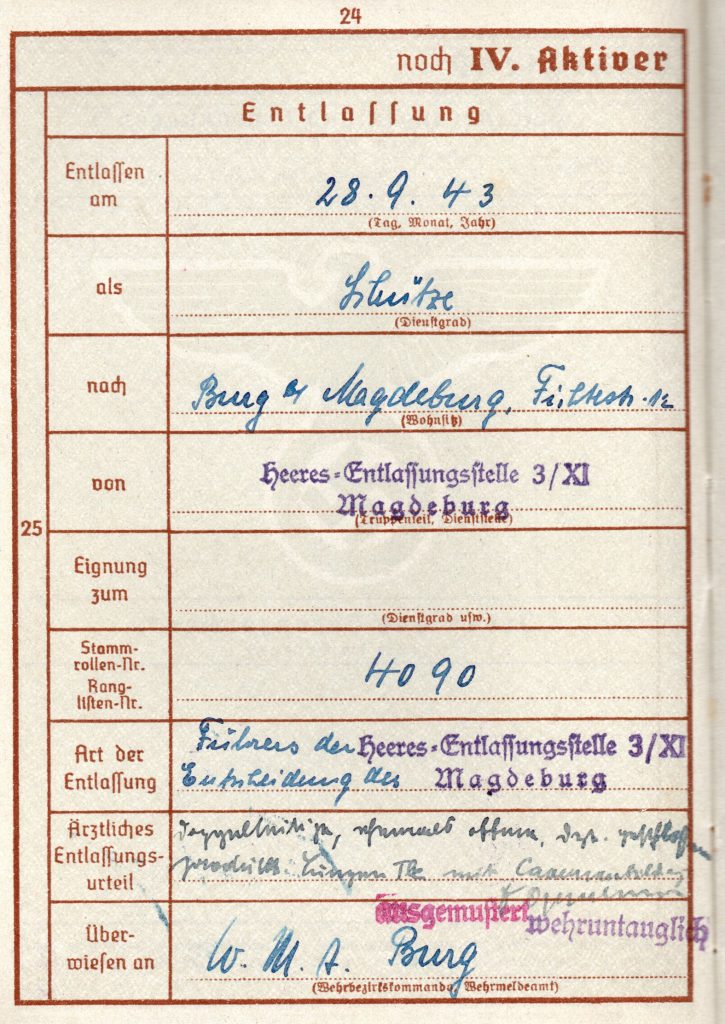 24
noch IV. Aktiver
Entlassung
Entlassen am
28. 9. 43
(Tag, Monat, Jahr)
als
Schütze
(Dienstgrad)
nach
Burg Magdeburg,
(Wohnsitz)
von
Heeres-Entlassungsstelle 3/XI
Magdeburg
(Truppenteil, Dienststelle)
25
Eignung zum
(Dienstgrad usw.)
Stamm-
rollen-Nr.
Rang-
listen-Nr.
4090
Art der
Entlassung
Führers der Heeres-Entlassungsstelle 3/XI
Entscheidung des Magdeburg
Ärztliches
Entlassungs-
urteil
doppelseitige, ehemals offene,
Lungen Tbc mit
Ausgemustert wehruntauglich
Über-
wiesen an
W. M. A. Burg
(Wehrbezirkskommando, Wehrmeldeamt)